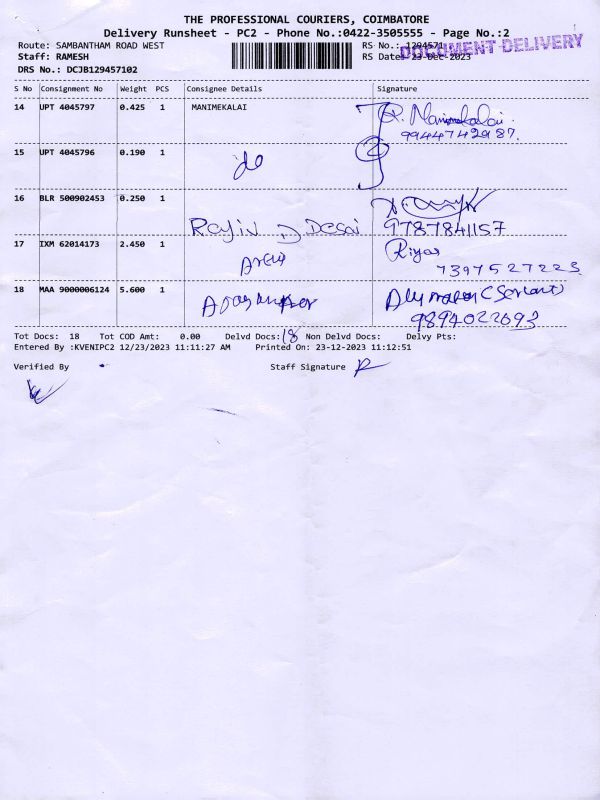 THE PROFESSIONAL COURIERS, COIMBATORE
Delivery Runsheet - PC2 - Phone No.:0422-3505555 - Page No.:2
Route: SAMBANTHAM ROAD WEST RS No.: 1294571
Staff: RAMESH RS Date: 23-Dec-2023
DOCUMENT DELIVERY
DRS No.: DCJB129457102
S No Consignment No Weight PCS Consignee Details Signature
14 UPT 4045797 0.425 1 MANIMEKALAI R. Manimekalai
9944742987.
15 UPT 4045796 0.190 1 do
16 BLR 500902453 0.250 1
Rajiv D Desai 9787841157
17 IXM 62014173 2.450 1 Riyas
7397527223
18 MAA 9000006124 5.600 1
9894022693
Tot Docs: 18 Tot COD Amt: 0.00 Delvd Docs: 18 Non Delvd Docs: Delvy Pts:
Entered By :KVENIPC2 12/23/2023 11:11:27 AM Printed On: 23-12-2023 11:12:51
Verified By Staff Signature